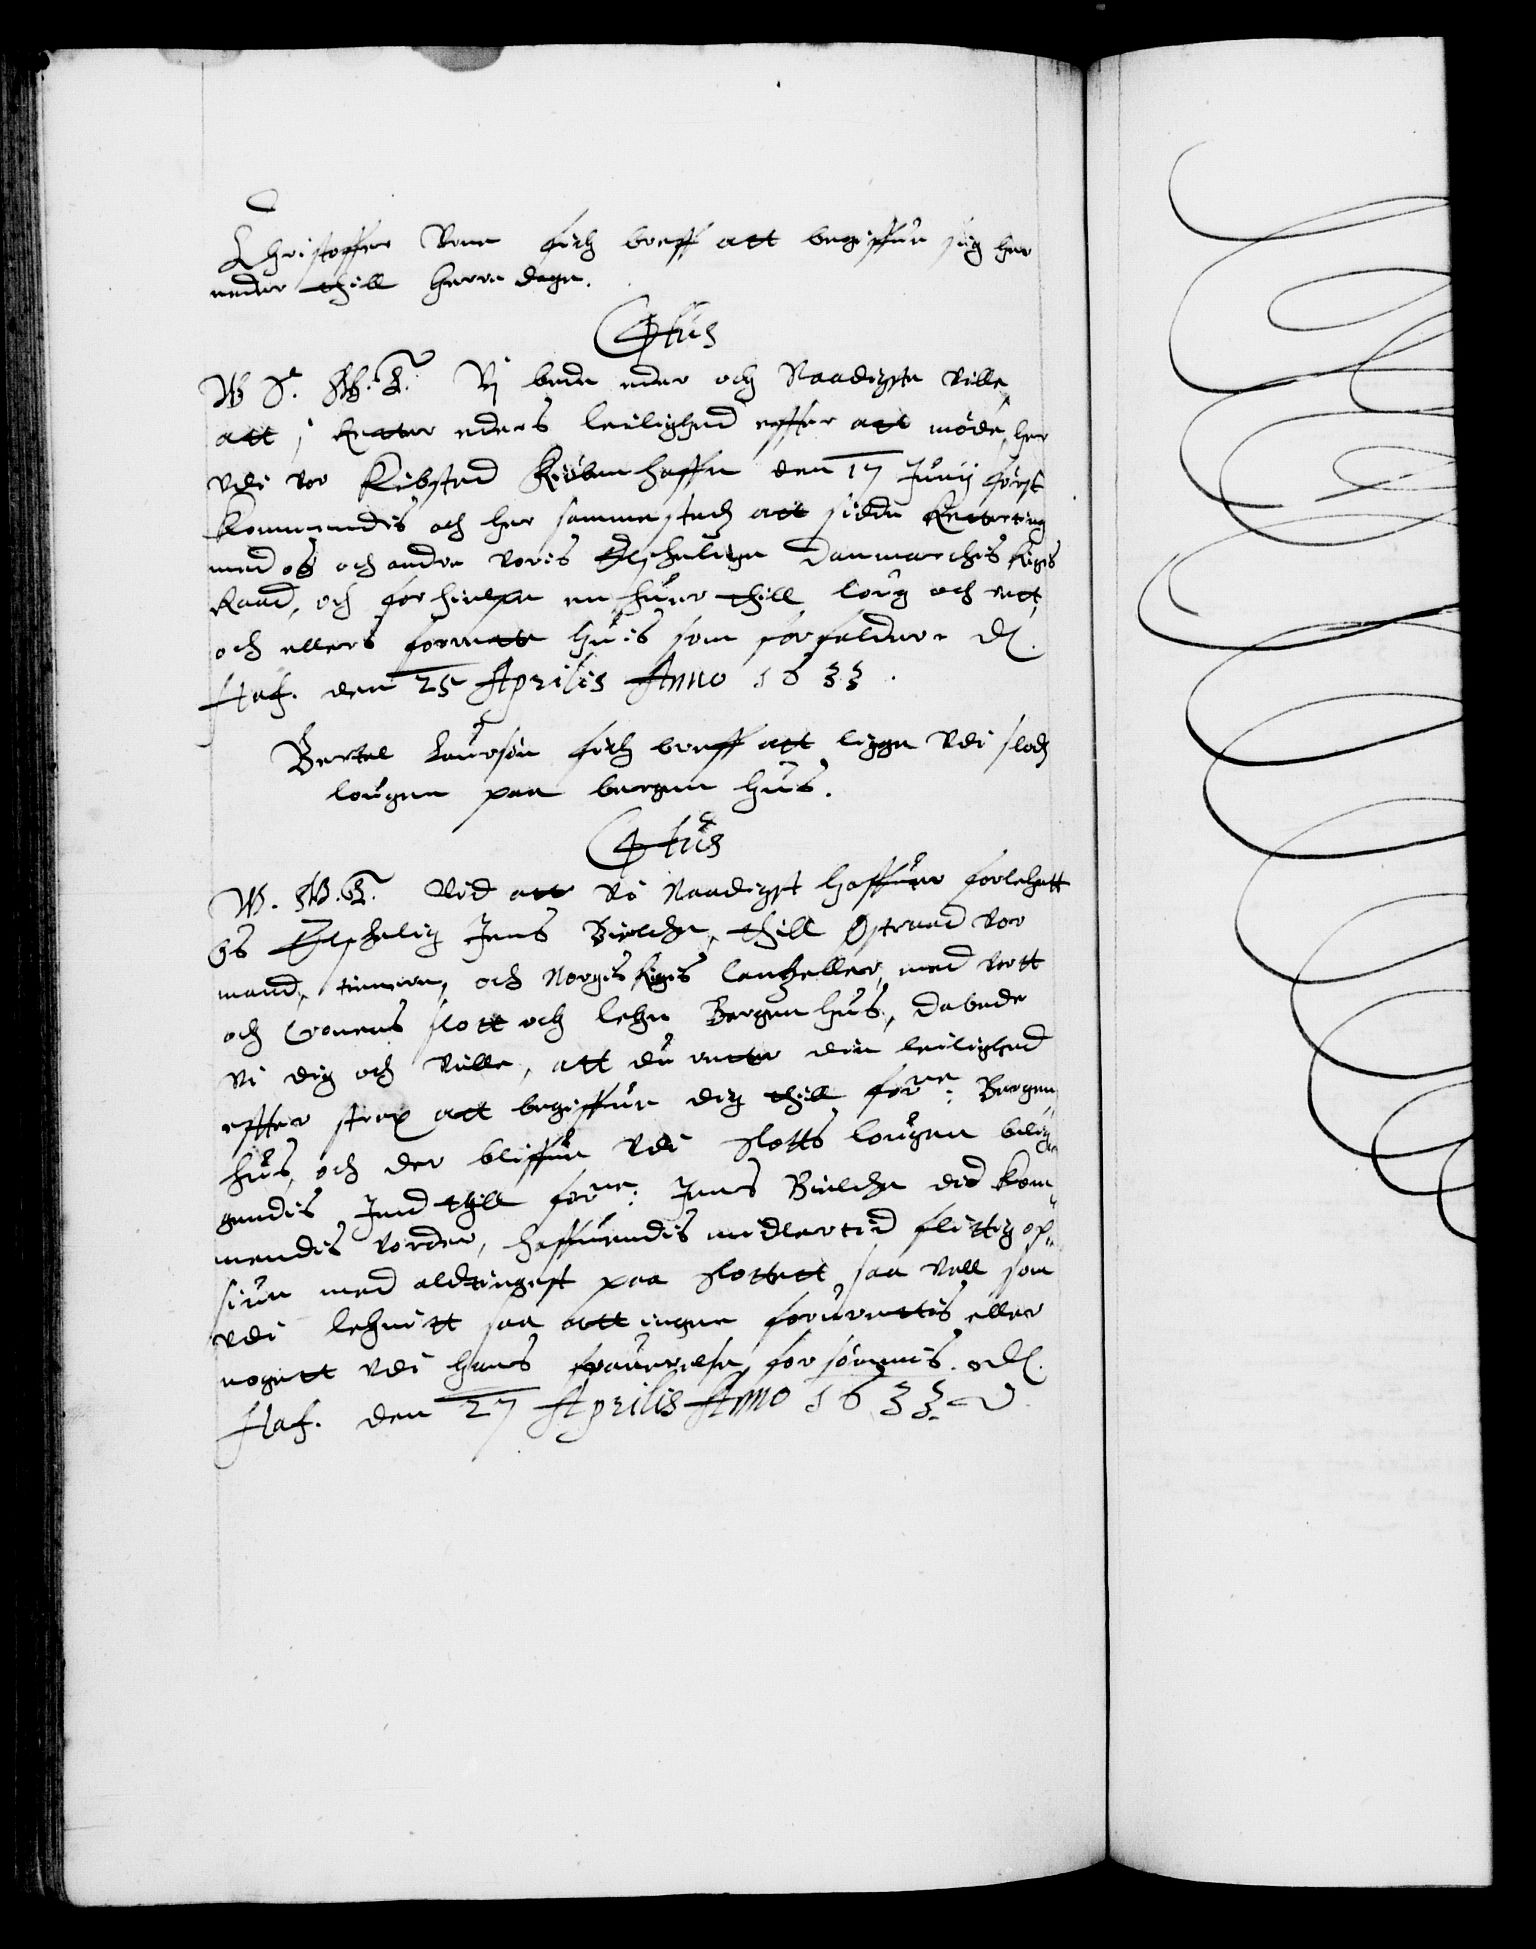 Christoffer Urne fich breff att begiffue sig her
neder thill herre dage.
C4tus
W S. W. G. T. Vj bede eder och Naadigste ville
att i retter eders leilighed effter att møde her
vdi vor Kiøbsted Kiøbenhaffn den 17 Junij først
kommendis och her sammesteds att sidde Retterting
med os och andre voris Elschelige Danmarchis Rigis
Raad, och forhielpe en huer thill loug och rett,
och ellers forrette huis som forfalder. Dl.
Haf. den 25 Aprilis Anno 1633.
Bertel Laursøn fich breff att ligge vdi slods
lougen paa bergen hus.
C4tus
W. G. T. Vid att vi Naadigst haffuer forlehntt
Os Elschelig Jens Bielche, thill Østraad vor
mand, tienere, och Norgis Rigis Cantzeller, med vortt
och Cronens slott och lehn Bergenhus, da bede
vi dig och ville, att du retter din leilighed
effter strax att begiffue dig thill forne: Bergen
hus, och der bliffue vdi slotts lougen belig
gendis Ind thill forne: Jens Bielche did kom
mendis vorder, haffuendis midlertid flittig op
siun med aldtingest paa slottett saa vell som
vdi lehnitt saa att ingen forurettis eller
nogett vdi hans frauerelse forsømmis. Dl.
Haf. den 27 Aprilis Anno 1633.